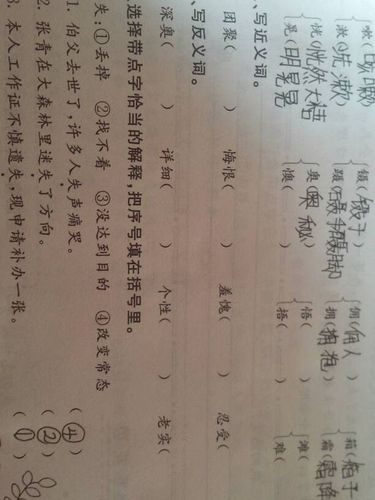 嗽(咳嗽 镊(镊子 佣(佣人 箱(箱子
漱(洗漱) 蹑(蹑手蹑脚 拥(拥抱 霜(霜降
恍(恍然大悟 奥(奥秘) 悟( 滩(
晃(明晃晃 懊( 捂( 难(
、写近义词。
团聚( ) 悔恨( ) 羞愧( ) 忍受(
、写反义词。
深奥( ) 详细( ) 个性( ) 老实(
选择带点字恰当的解释,把序号填在括号里。
失:①丢掉 ②找不着 ③没达到目的 ④改变常态
1. 伯父去世了,许多人失声痛哭。 (④)
2. 张青在大森林里迷失了方向。 (②)
3. 本人工作证不慎遗失,现申请补办一张。 (①)